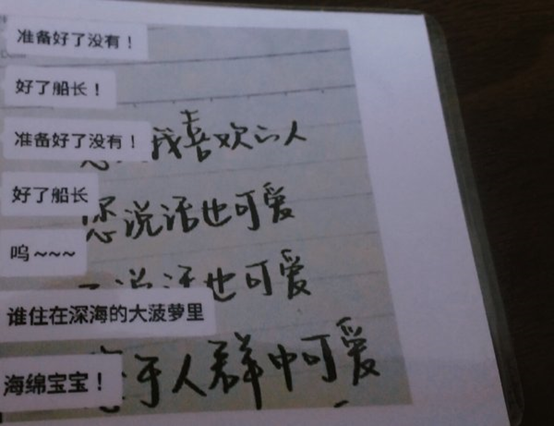 准备好了没有！
好了船长！
准备好了没有！
我喜欢的人
好了船长
您说话也可爱
呜~~~
说话也可爱
谁住在深海的大菠萝里
于人群中可爱
海绵宝宝！